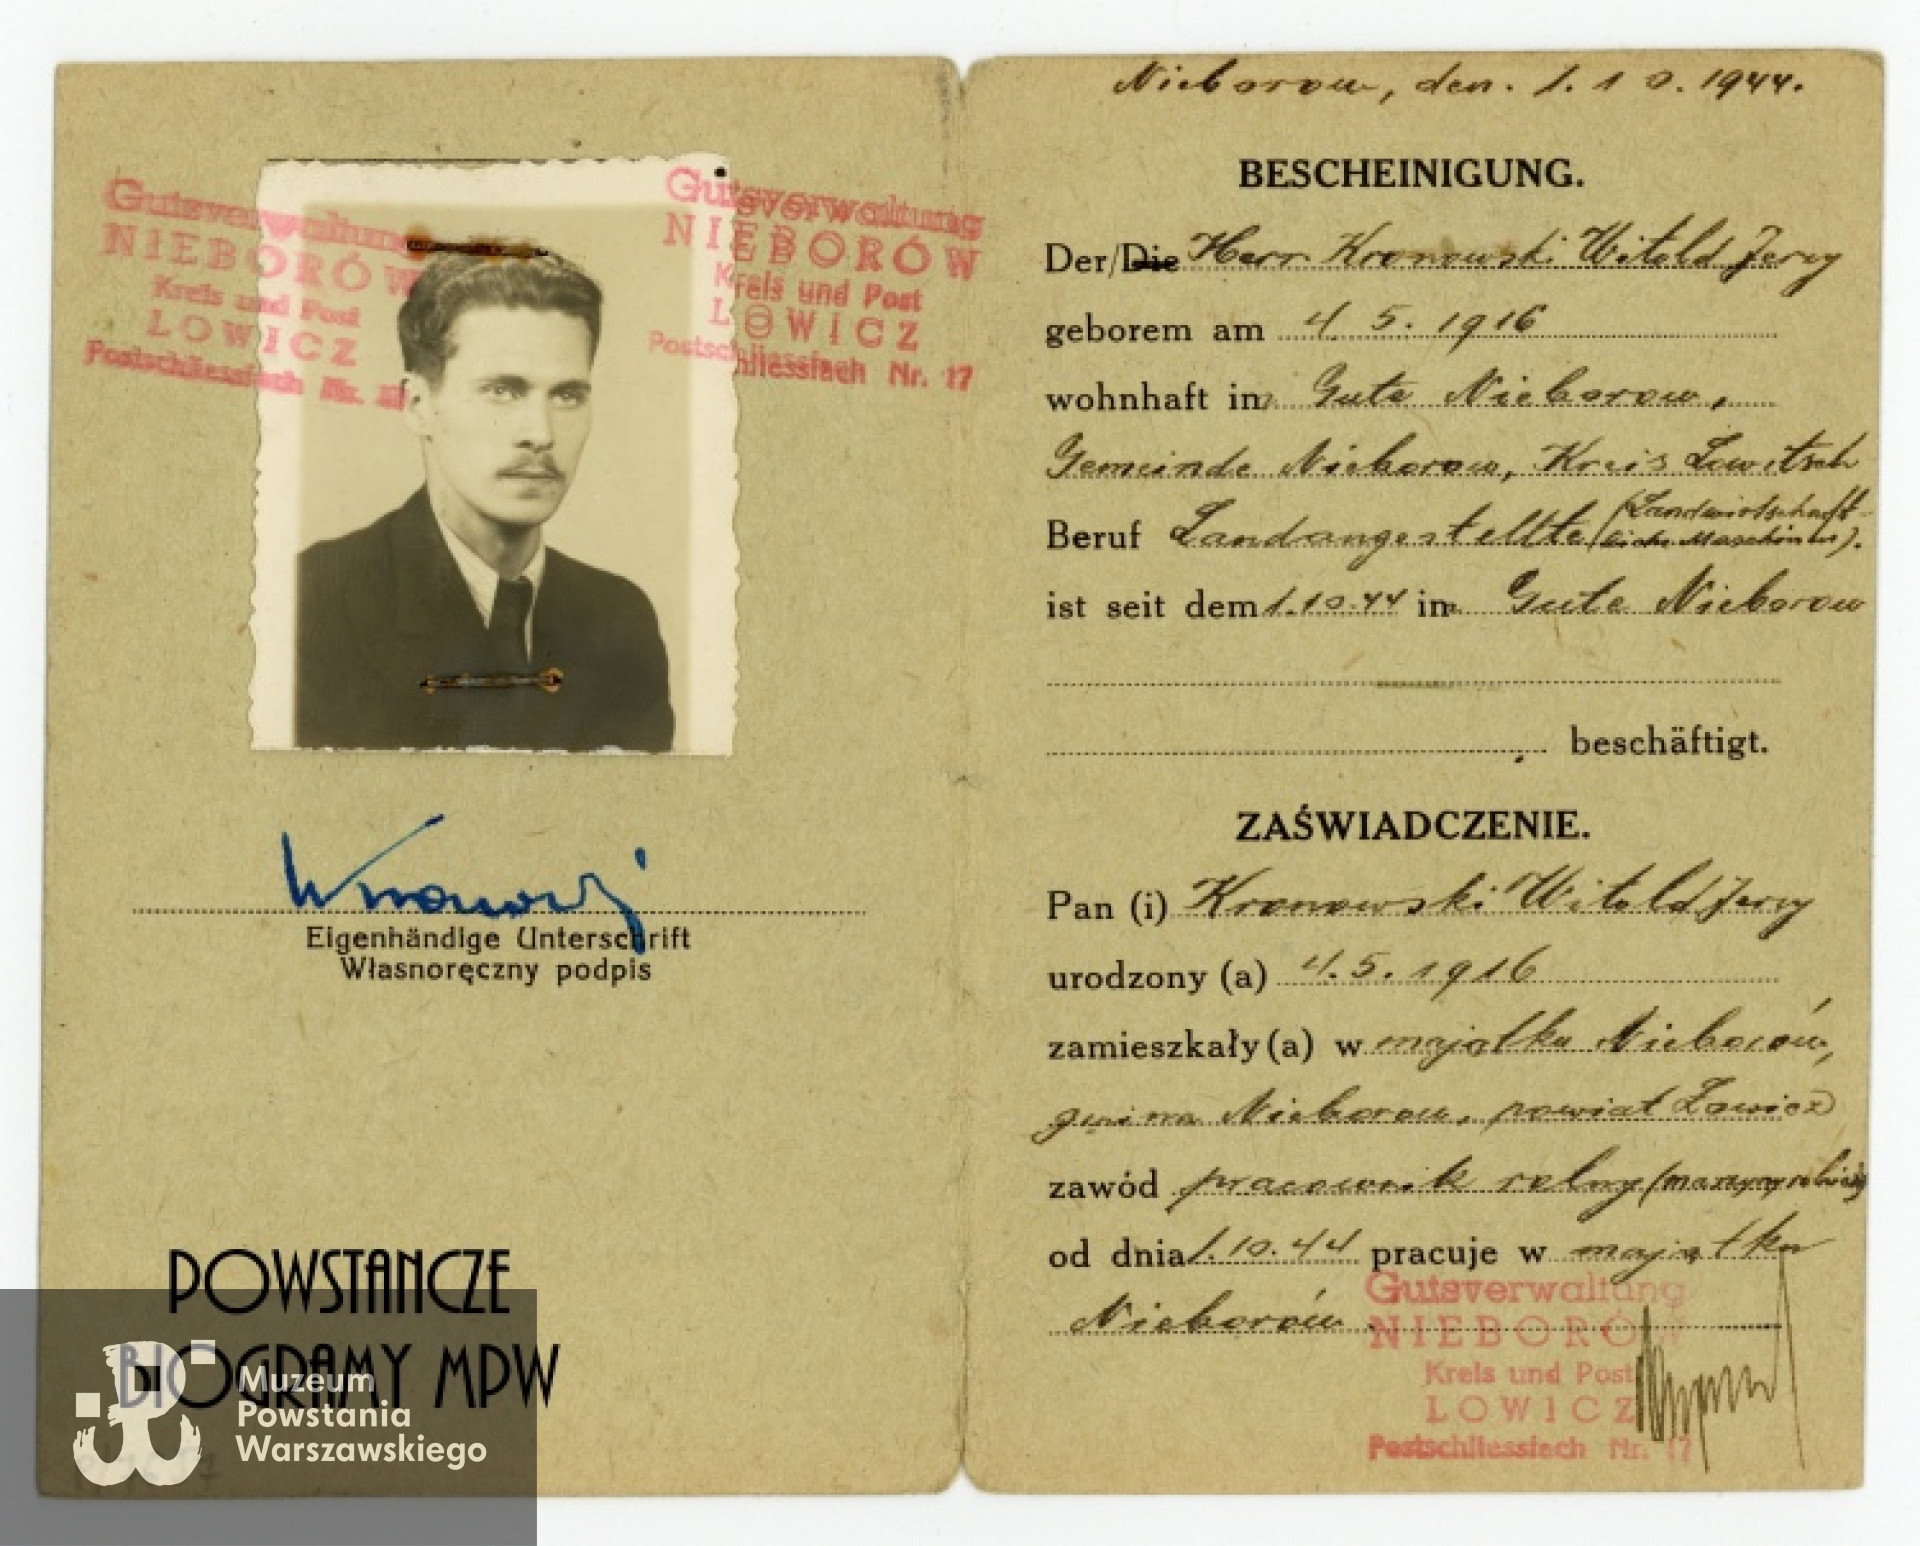 Gutsverwaltung
NIEBORÓW
Kreis und Post
LOWICZ
Postschliessfach Nr. 17
Gutsverwaltung
NIEBORÓW
Kreis und Post
LOWICZ
Postschliessfach Nr. 17
Eigenhändige Unterschrift
Własnoręczny podpis
POWSTAŃCZE
BIOGRAMY MPW
Muzeum
Powstania
Warszawskiego
Nieborow, den. 1. 10. 1944.
BESCHEINIGUNG.
Der/Die Herr Kronowski Witold Jerzy
geborem am 4 5. 1916
wohnhaft in Gute Nieborow,
Gemeinde Nieborow, Kreis Lowitsch
Beruf Landangestellte (Landwirtschaft-
liche Maschinen).
ist seit dem 1.10.44 in Gute Nieborow
beschäftigt.
ZAŚWIADCZENIE.
Pan (i) Kronowski Witold Jerzy
urodzony (a) 4.5.1916
zamieszkały (a) w majątku Nieborów,
gmina Nieborow, powiat Łowicz
zawód pracownik rolny (maszyny rolnicze)
od dnia 1.10.44 pracuje w majątku
Nieborów
Gutsverwaltung
NIEBORÓW
Kreis und Post
LOWICZ
Postschliessfach Nr. 17